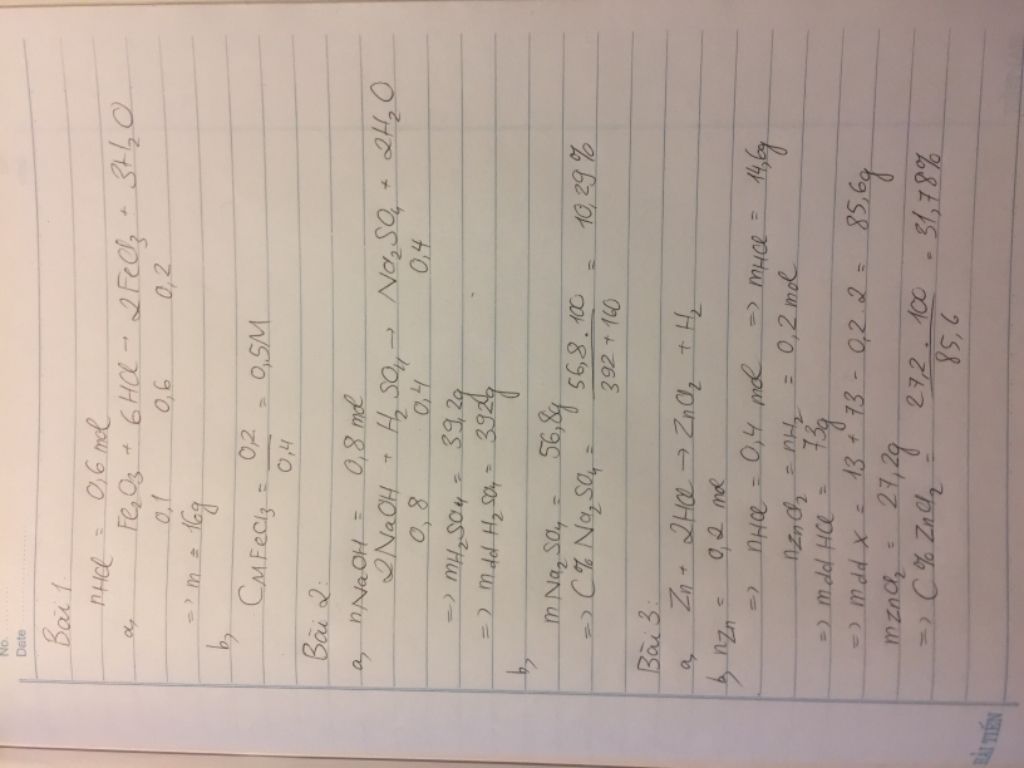 No.
Date
Bài 1:
nHCl = 0,6 mol
a, Fe₂O₃ + 6HCl → 2FeCl₃ + 3H₂O
0,1 0,6 0,2
=> m = 16g
b,
CM FeCl₃ = 0,2/0,4 = 0,5M
Bài 2:
a, nNaOH = 0,8 mol
2NaOH + H₂SO₄ → Na₂SO₄ + 2H₂O
0,8 0,4 0,4
=> mH₂SO₄ = 39,2g
=> mdd H₂SO₄ = 392g
b,
mNa₂SO₄ = 56,8g
=> C% Na₂SO₄ = 56,8 . 100 / 392 + 160 = 10,29%
Bài 3:
a, Zn + 2HCl → ZnCl₂ + H₂
b, nZn = 0,2 mol
=> nHCl = 0,4 mol => mHCl = 14,6g
nZnCl₂ = nH₂ = 0,2 mol
=> mdd HCl = 73g
=> mdd X = 13 + 73 - 0,2 . 2 = 85,6g
mZnCl₂ = 27,2g
=> C% ZnCl₂ = 27,2 . 100 / 85,6 = 31,78%
HẢI TIẾN